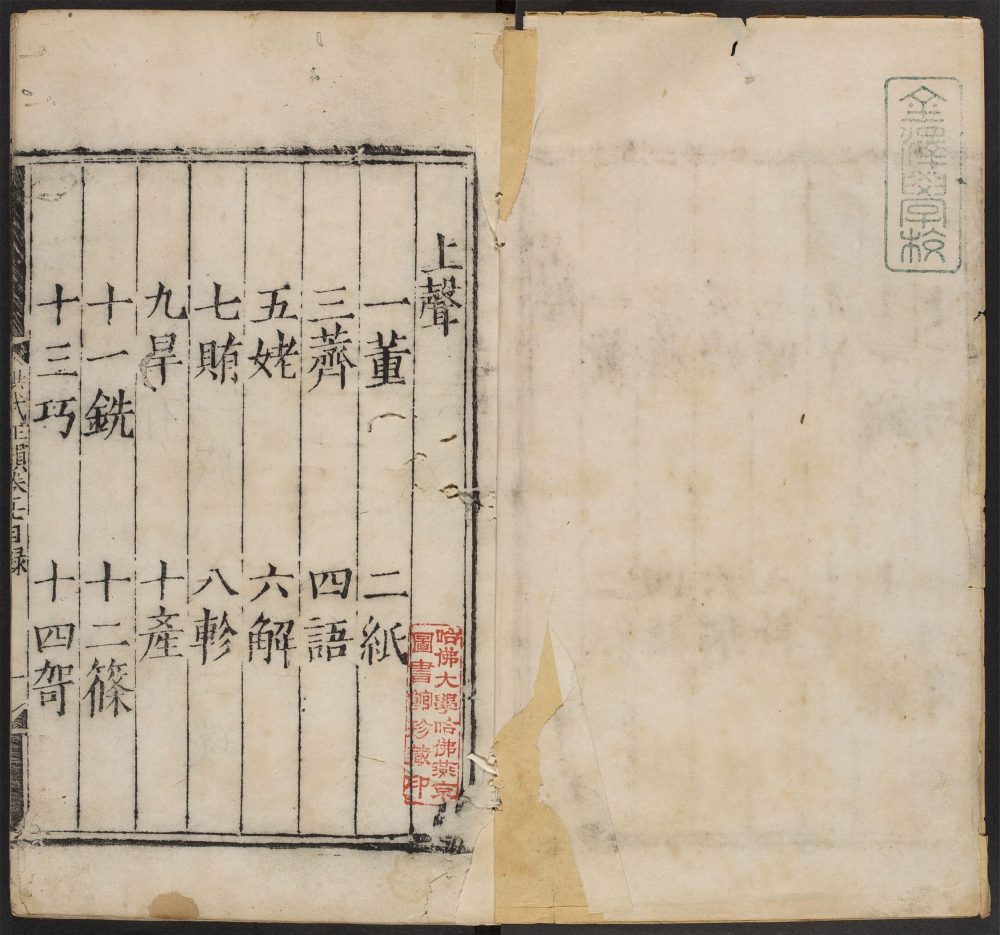 金澤學校
上聲
一董 二紙
三薺 四語
五姥 六解
七賄 八軫
九旱 十產
十一銑 十二篠
十三巧 十四哿
洪武正韻卷七目録
一
哈佛大學哈佛燕京
圖書館珍藏印